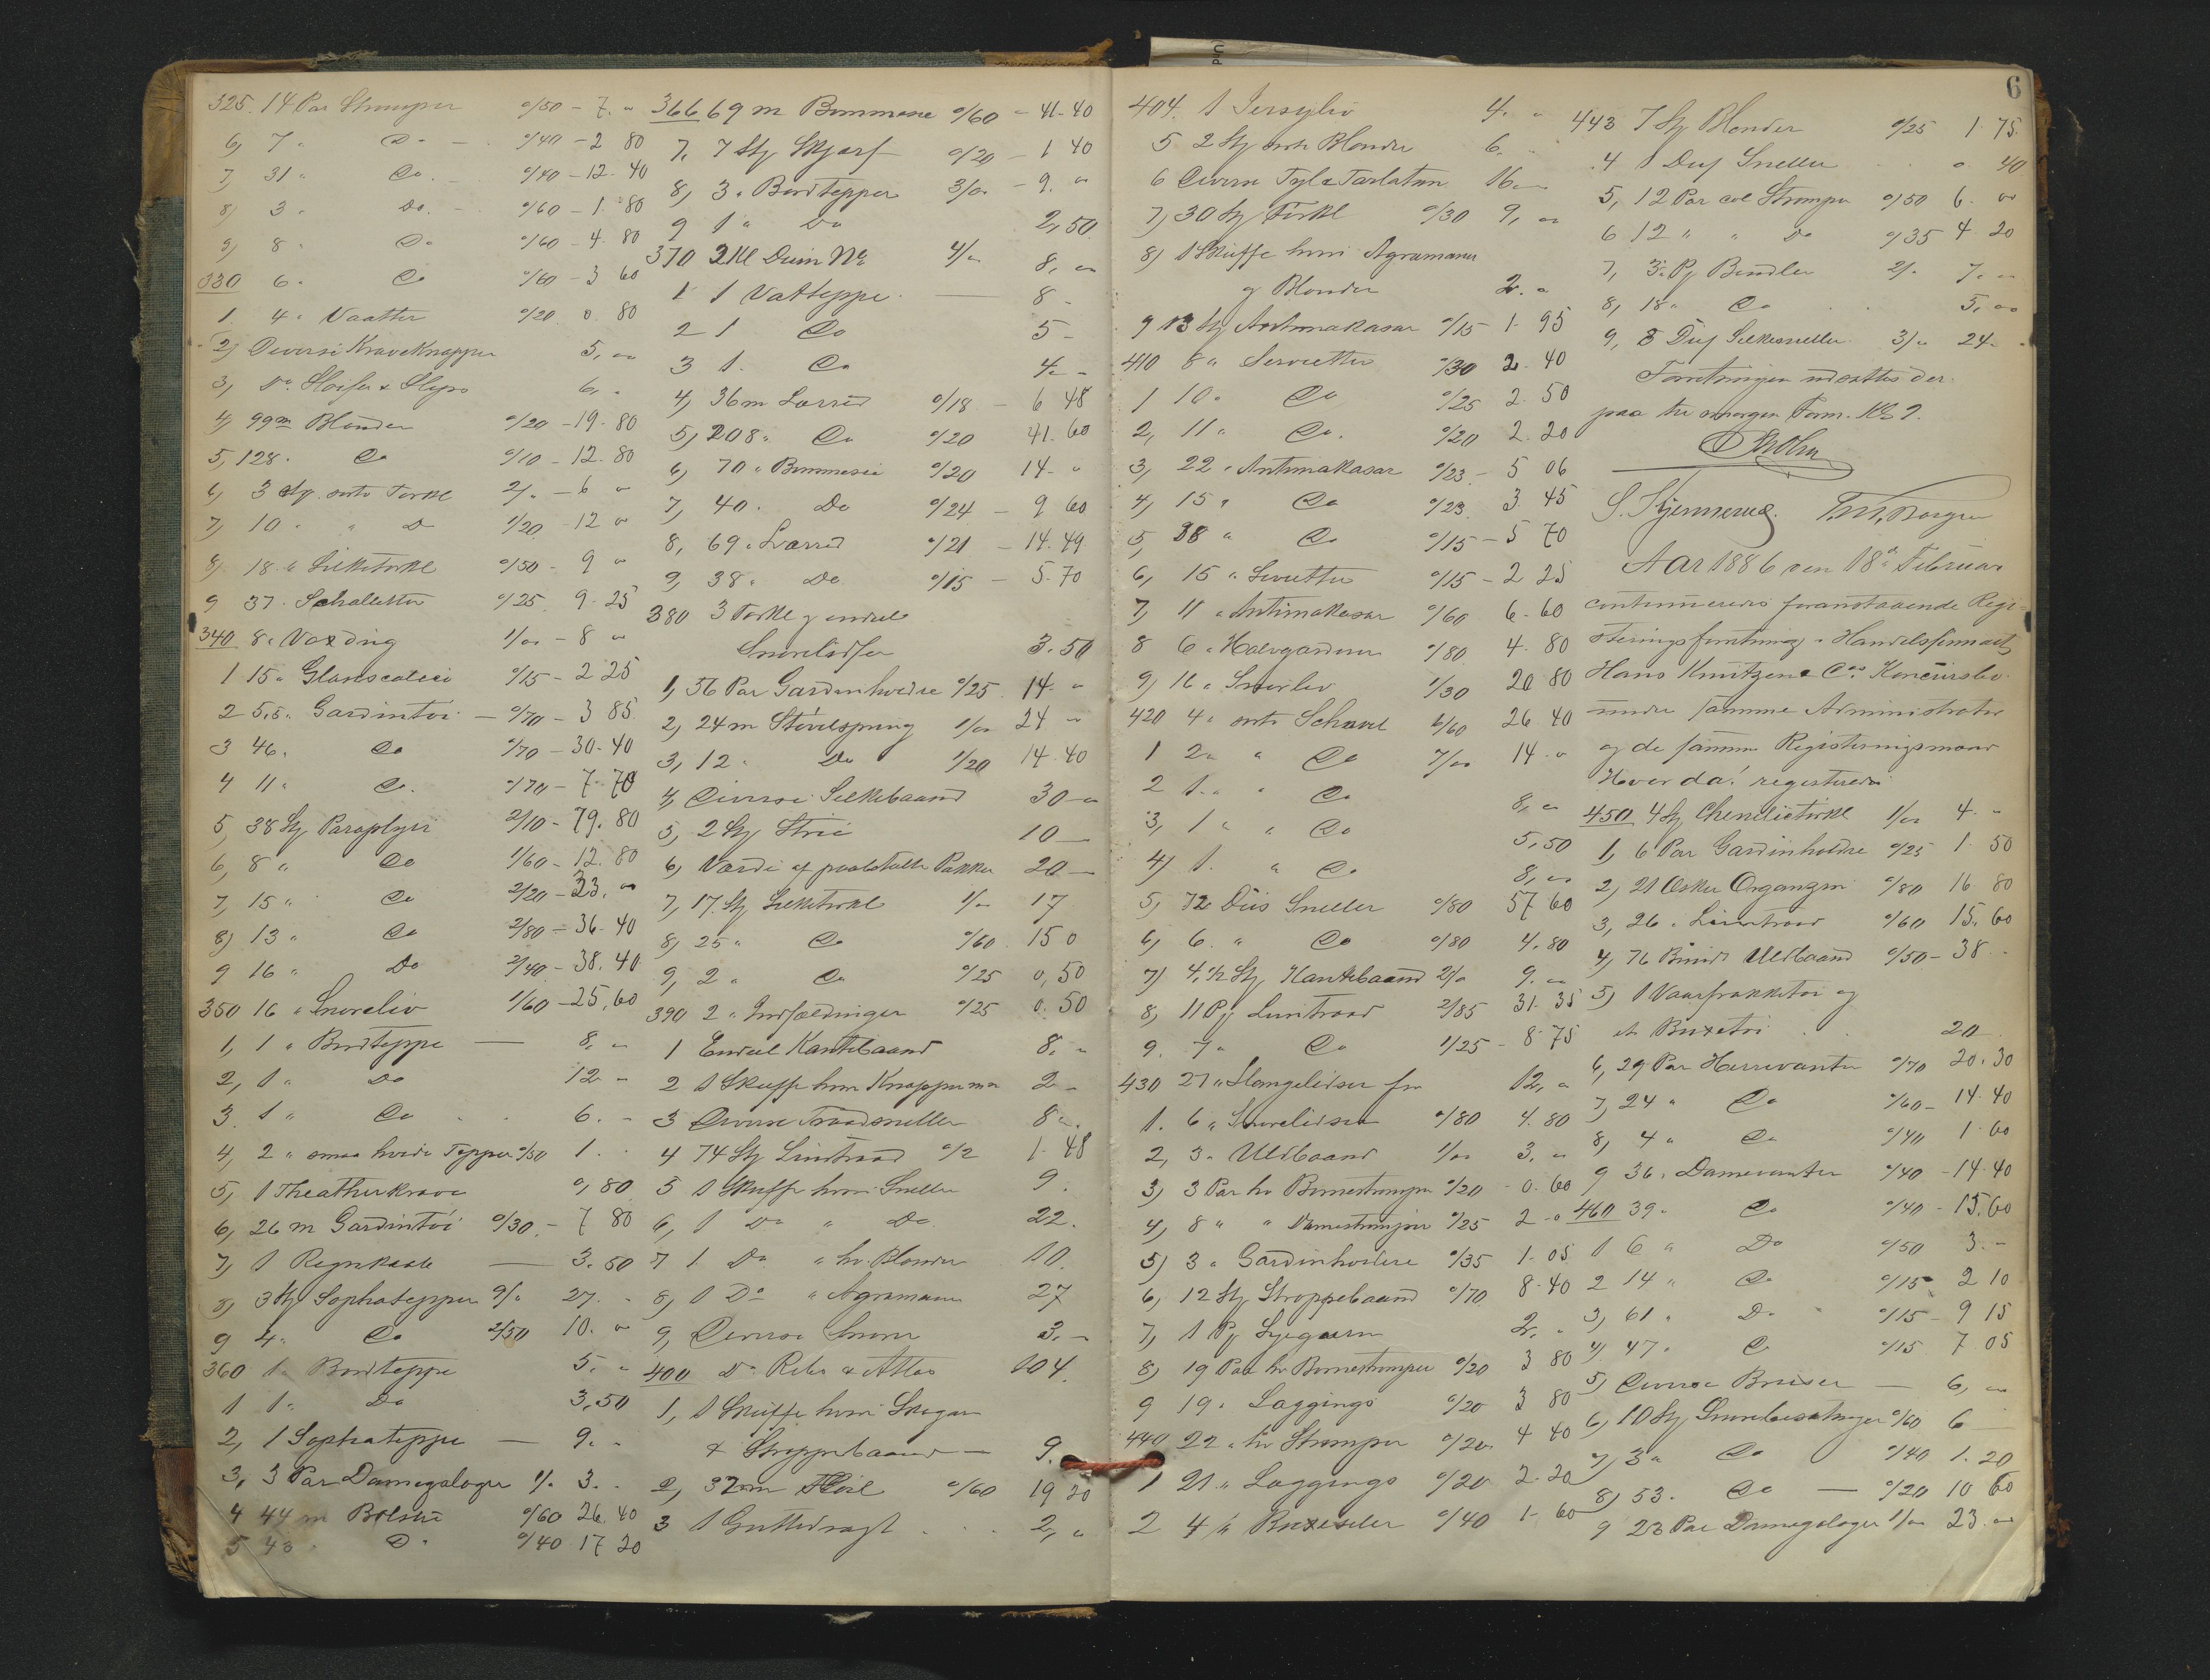 325. 14 Par Strømper o/50 - 7. "
6, 7 " Do - o/40 - 2 80
7, 31 " Do. - o/40 - 12. 40
8, 3 " Do. - o/60 - 1. 80
9, 8 " Do o/60 - 4. 80
330 6 " Do o/60 - 3 60
1. 4 " Vaatter o/20 0. 80
2, Diverse KraveKnapper 5, "
3, Do. Sløifer & Slips 6, "
4, 99 m Blonder o/20 - 19. 80
5, 128 " Do o/10 - 12. 80
6, 3 Stp. sorte Tørkl 2/. - 6 "
7, 10 " " Do 1/20 - 12 "
8, 18 " Silketørkl o/50 - 9 "
9 37 " o/25 9. 25
340 8 " Voxdug 1/" - 8 "
1 15 " Glanscateau o/15 - 2 25
2 5,5 " Gardintøi - o/70 - 3 85
3 46 " Do o/70 - 30. 40
4 11 " Do. o/70 - 7. 70
5, 38 Stp Paraplyer 2/10 - 79. 80
6, 8 " Do 1/60 - 12. 80
7, 15 " Do 2/20 - 33. "
8, 13 " Do 2/80 - 36. 40
9 16 " Do 2/40 - 38. 40
350 16 " Snoreliv 1/60 - 25, 60
1, 1 " Bordteppe - 8, "
2, 1 " Do 12 -
3. 1 " Do 6. -
4, 2 " smaa hvide Tepper o/50 1.
5, 1 Theatherkrave 0, 80
6, 26 m Gardintøi o/30 - 7 80
7, 1 Regnkaabe - 3. 50
8, 3 Stp Sophatepper 9/" 27. -
9 4 " Do 2/50 10. "
360 1 " Bordteppe 5. "
1 1 " Do 3,50
2, 1 Sophateppe - 9. "
3, 3 Par Damegaloger 1/. 3. .
4 44 m Bolster o/60 26. 40
5 43 " Do o/40 17 20
366 69 m Bommesie o/60 - 41. 40
7, 7 Stp Skjærf o/20 - 1 40
8, 3 " Bordtepper 3/" - 9. "
9 1 " Do 2,50
370 2 Kl Duun No 4/" 8, "
1 1 Vatteppe - 8 -
2 1 Do 5 -
3 1. Do 4. -
4, 36 m Lærred o/18 - 6 48
5, 208 " Do o/20 41. 60
6, 70 " Bommesie o/20 14. "
7, 40 " Do o/24 - 9 60
8, 69 " Lærred o/21 - 14. 49
9, 38 " Do o/15 - 5. 70
380 3 Tørkl og endeel
Snorelidser 3. 50
1, 56 Par Gardinholdre o/25 14. "
2, 24 m Støvelspring 1/" 24 "
3, 12 " Do 1/20 14. 40
4, Diverse Silkebaand 30 "
5, 2 Stp Strie 10 -
6, Værdi af Pakker 20 -
7, 17 Stp Silketørkl 1/" 17
8, 25 " Do o/60 15 0
9, 2 " Do o/25 0, 50
390 2 " Indfældinger o/25 0. 50
1 Endeel Kantebaand 8. "
2 1 Skuffe hvori Knapper m 2 -
3 Diverse Traadsneller 8 ".
4 74 Stp Lintraad o/2 1. 48
5 1 Skuffe hvori Sneller 9.
6, 1 Do " Do 22.
7 1 Do " hv. Blonder 10.
8, 1 Do " Agramaner 27
9, Diverse Snorer 3. -
400 Do Rebs & Atlas 104.
1, 1 Skuffe hvori
& Stroppebaand - 9.
2, 32 m o/60 19 20
3 1 Guttedragt 2, "
6
404. 1 Jersyliv 4. "
5 2 Stp sorte Blonder 6. "
6 Diverse Tyl & Tarlatan 16. -
7, 30 Stp Tørkl o/30 9, "
8, 1 Skuffe hvori Agramaner
og Blonder 2. "
9 13 Stp Antimakasar o/15 1. 95
410 8 " Servietter o/30 2. 40
1 10 " Do o/25 2. 50
2, 11 " Do. o/20 2. 20
3, 22 " Antimakasar o/23 - 5 06
4, 15 " Do o/23 3 45
5, 38 " Do o/15 - 5 70
6, 15 " Servietter o/15 - 2 25
7, 11 " Antimakasar o/60 6. 60
8 6 " o/80 4. 80
9, 16 " Snorliv 1/30 20 80
420 4 " sorte Schavl 6/60 26 40
1 2 " " Do 7/" 14. "
2 1 " " Do 8, "
3, 1 " " Do 5,50
4, 1. " Do 8, "
5, 72 Dus Sneller o/80 57 60
6, 6 " Do o/80 4. 80
7, 4 1/2 Stp Kantebaand 2/" 9. "
8, 11 Pj Lintraad 2/85 31. 35
9. 7 " Do 1/25 - 8 75
430 27 " Slangelidser for 12, "
1. 6 " Snorelidser o/80 4. 80
2, 3 " Uldbaand 1/" 3, "
3, 3 Par hv Børnestrømper o/20 - 0. 60
4, 8 " " Damestrømper o/25 2 -
5, 3 " Gardinholdere o/35 1. 05
6, 12 Stp Stroppebaand o/70 8. 40
7, 1 Pj Sygarn 2, "
8, 19 Par hv Børnestrømper o/20 3 80
9 19 " Laggings o/20 3 80
440 22 " hv Strømper o/20 4 40
1 21 " Laggings o/20 2. 20
2 4 " Buxeseler o/40 1. 60
443 7 Stp Blonder o/25 1. 75.
4 1 Dus Sneller " 40
5, 12 Par col Strømper o/50 6. "
6 12 " " Do o/35 4 20
7, 3 " Pj Bændler 2/. 7. "
8, 18 " Do 5, "
9, 8 Dus Silkesneller 3/" 24. "
Forretningen udsattes der-
paa til imorgen Form. Kl. 9.
S. Stjernerud. Borgen
Aar 1886 den 18de Februar
continueredes foranstaaende Regi-
streringsforretning i Handelsfirmaet
Hans Knutzen & Co.s Konkursbo
under samme Administrator
og de samme Registreringsmænd
Hvorda! registreredes
450 4 Stp Chenilletørkl 1/" 4. "
1, 6 Par Gardinholdre o/25 1. 50
2, 21 Æsker Organzin o/80 16 80
3, 26 " Lintraad o/60 15. 60
4, 76 Bundt Uldbaand o/50 - 38 -
5, 1 Vaarfrakketøi og
et Buxetøi 20
6, 29 Par Herrevanter o/70 20. 30
7, 24 " Do o/60 - 14. 40
8, 4 " Do o/40 1. 60
9 36 " Damevanter o/40 - 14. 40
460 39 " Do o/40 - 15. 60
1 6 " Do o/50 3. -
2 14 " Do o/15 - 2 10
3, 61 " Do o/15 - 9 15
4, 47 " Do o/15 7. 05
5, Diverse - 6, "
6, 10 Stp Snorebesætninger o/60 6
7, 3 " Do o/40 1. 20
8, 53 " Do - o/20 10 60
9 23 Par Damegaloger 1/" 23. "